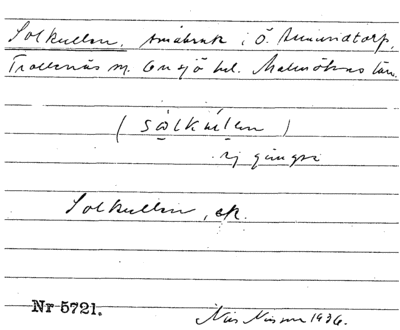 Solkullen, småbruk i Ö. Amundtorp,
Trollenäs sn. Onsjö hd. Malmöhus län.
( sålkúlen )
ej gängse
Solkullen, ek.
Nr 5721.
Nils Nilsson 1936.